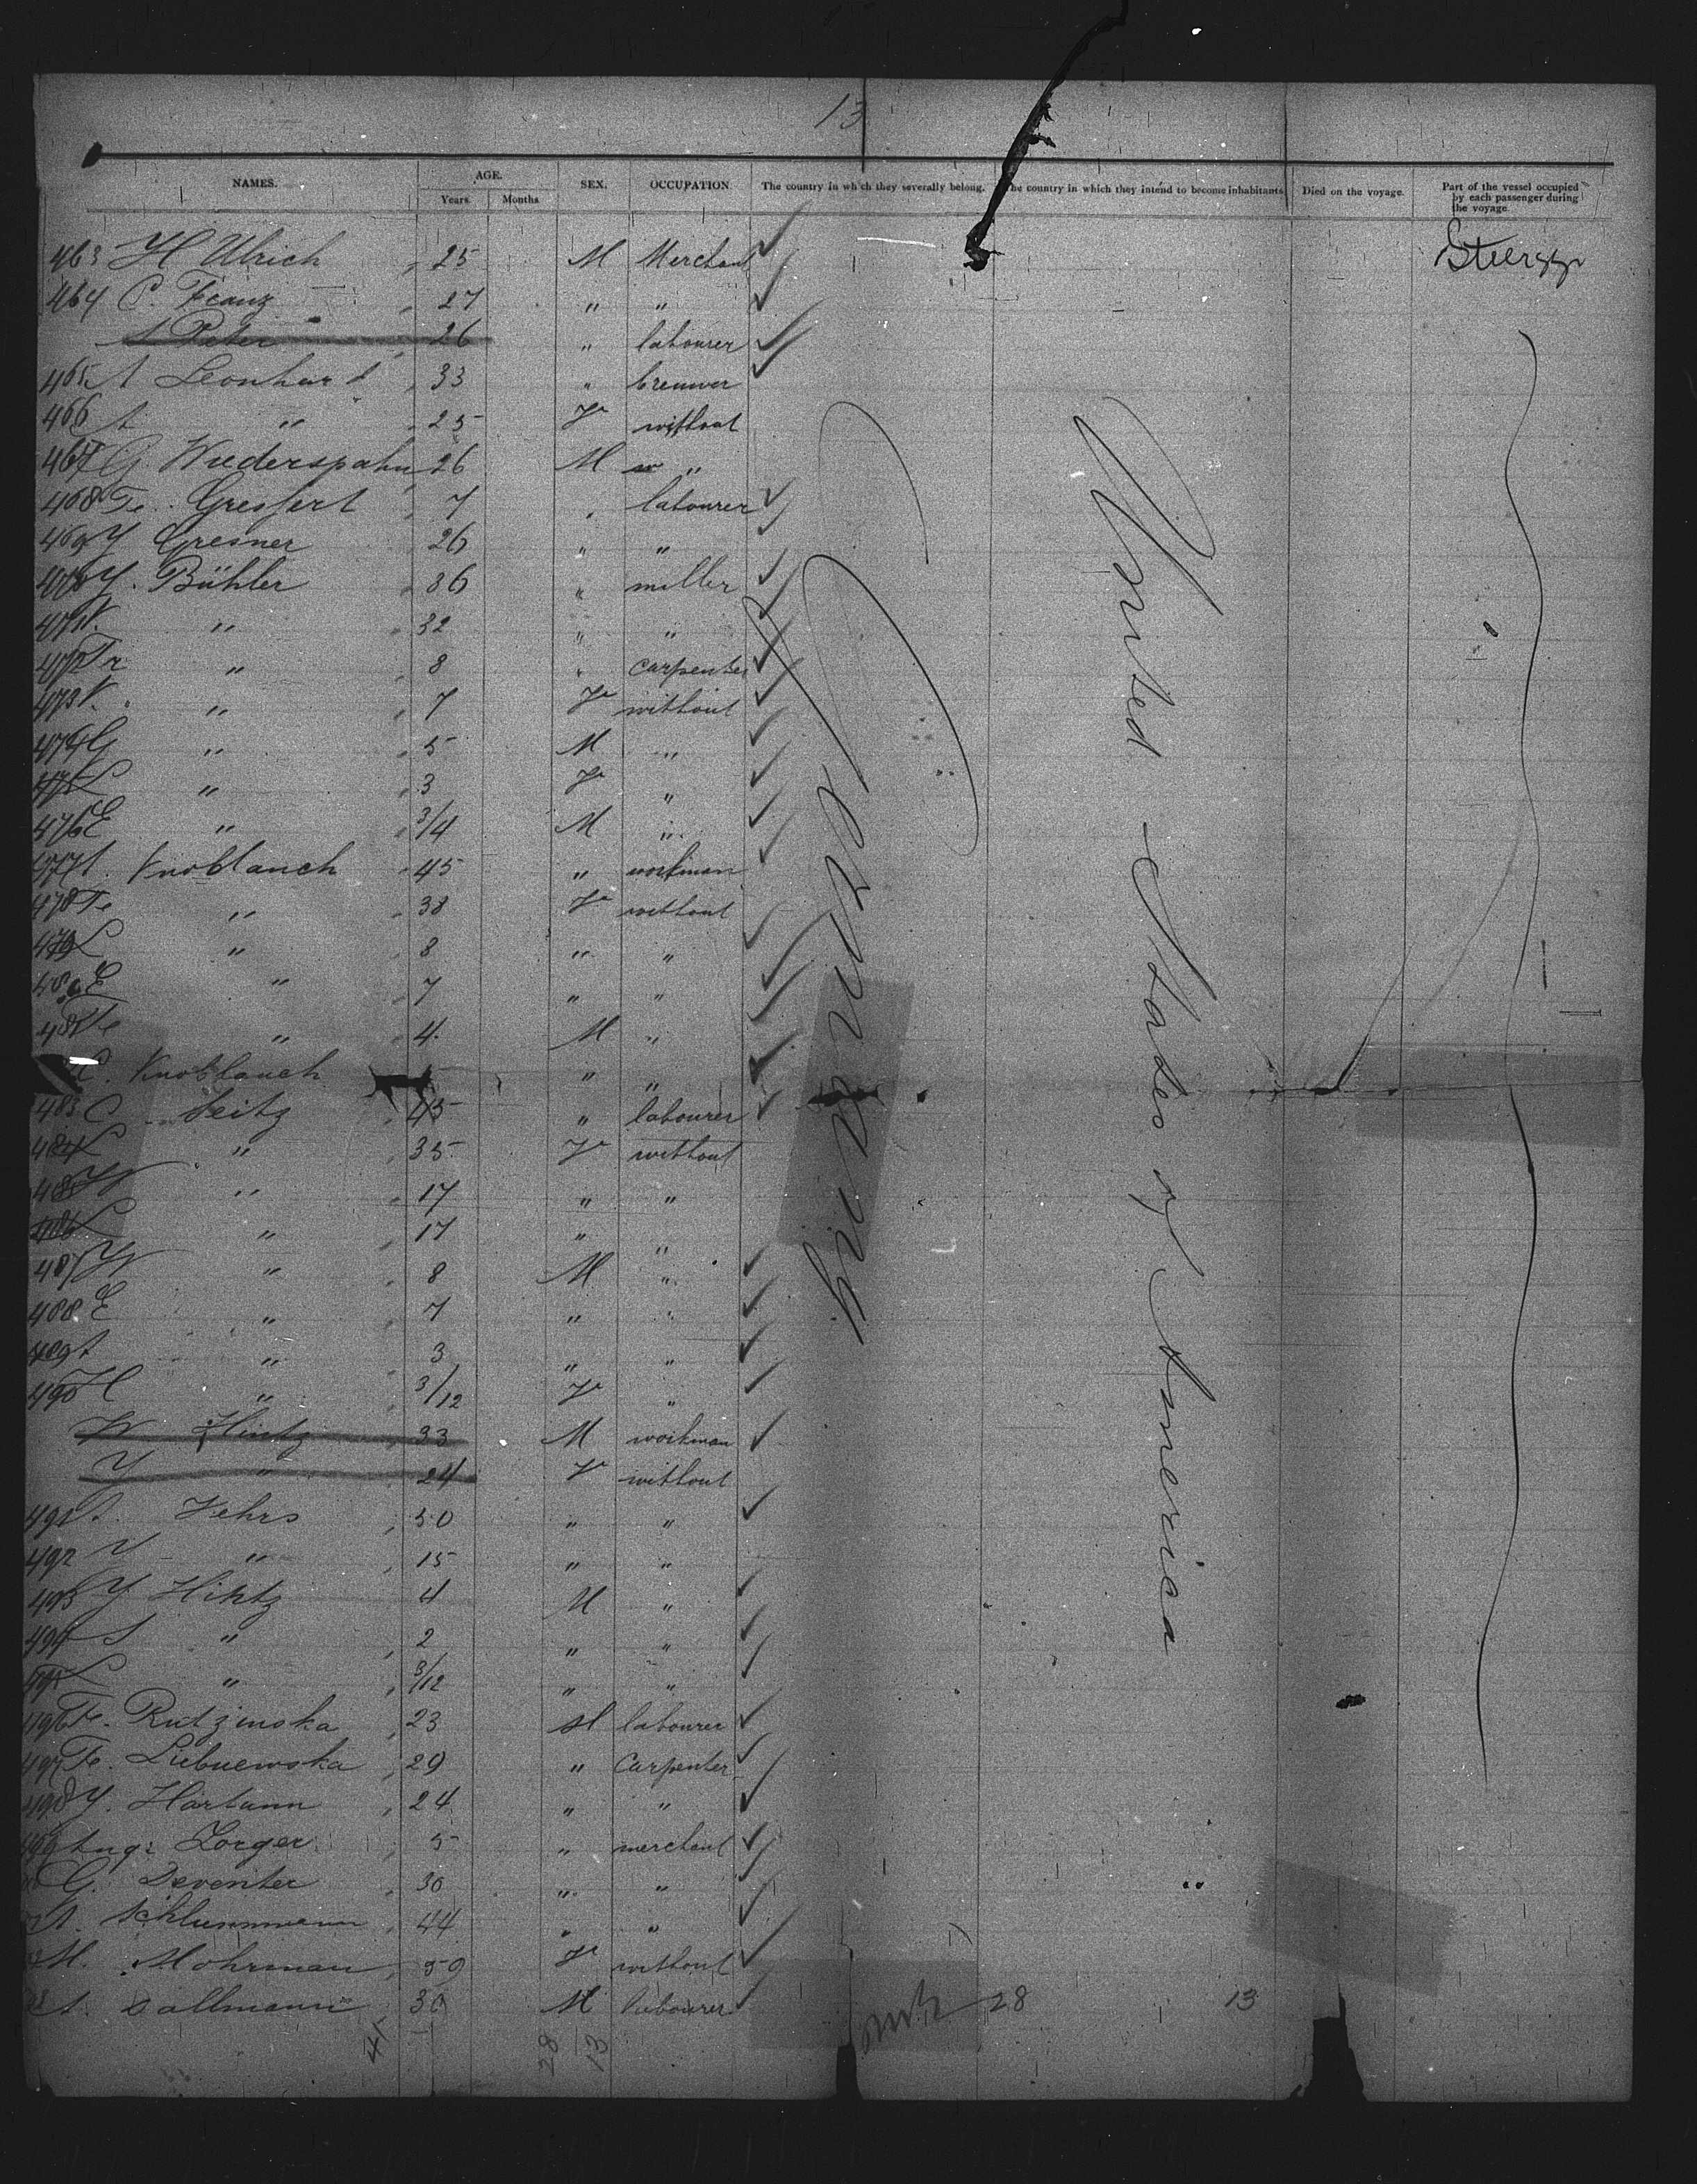 13
NAMES. AGE. SEX. OCCUPATION The country in which they severally belong. The country in which they intend to become inhabitants Died on the voyage. Part of the vessel occupied by each passenger during the voyage.
Years. Months
463 H Ulrich 25 M Merchant
464 C. Franz 27 " "
A Peter 26 " labourer
465 A Leonhard 33 " breuwer
466 A " 25 F without
467 G. Wiederspahn 26 M "
468 Fr. Gressert 7 " labourer
469 Y Gresner 26 " "
470 Y. Bühler 36 " miller
471 " 32 " "
472 Fr " 8 " carpenter
473 " 7 F without
474 G " 5 M "
475 L " 3 F "
476 E " 3/4 M "
477 A. Knoblauch 45 " workman
478 Fr " 38 F without
479 L " 8 " "
480 E " 7 " "
481 Fr " 4 M "
C. Knoblauch " "
483 C Seitz 45 " labourer
484 L " 35 F without
485 W " 17 " "
486 L " 17 " "
487 W " 8 M "
488 E " 7 " "
489 A " 3 " "
490 H " 3/12 F "
W Hintz 33 M workman
Y " 24 F without
491 A. Fehrs 50 " "
492 " 15 " "
493 Y Hintz 4 M "
494 S " 2 " "
495 L " 3/12 " "
496 Fr. Rutzinska 23 M labourer
497 Fr. Liebnewska 29 " Carpenter
498 Y. Hartann 24 " "
499 Aug: Zorger 5 " merchant
G. Deventer 30 " "
A. Schlunmann 44 " "
M. Mohrman 59 F without
A. Sallmann 30 M labourer
Germany
United States of America
28 13
41 28 13